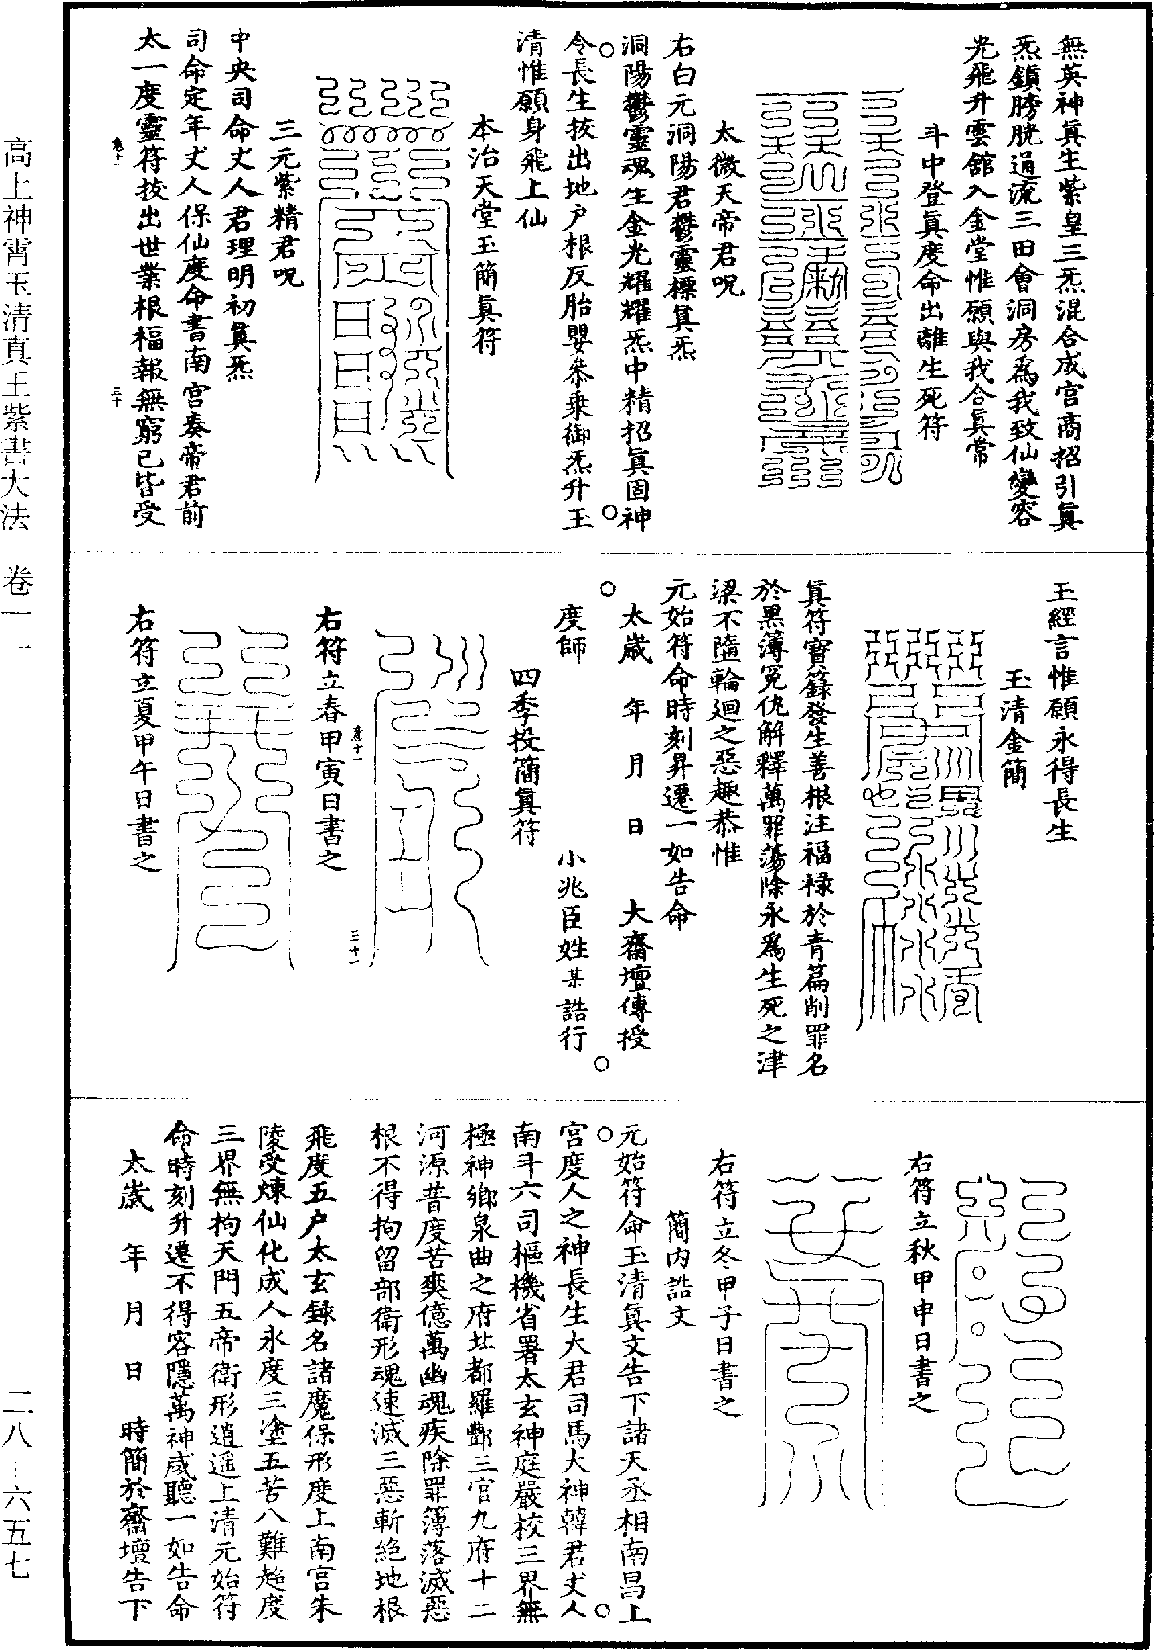 無英神真生紫皇三炁混合成宮商招引真
炁鎖膀胱通流三田會洞房為我致仙變容
光飛升雲館入金堂惟願與我合真常
斗中登真度命出離生死符
太微天帝君呪
右白元洞陽君鬱靈標真炁
洞陽鬱靈魂生金光耀耀炁中精招真固神
令長生拔出地戶根反胎嬰參乘御炁升玉
清惟願身飛上仙
本治天堂玉簡真符
三元紫精君呪
中央司命丈人君理明初真炁
司命定年丈人保仙度命書南宮奏帝君前
太一度靈符拔出世業根福報無窮已皆受
卷十一
三十
王經言惟願永得長生
玉清金簡
真符寶籙發生善根注福祿於青篇削罪名
於黑簿冤仇解釋萬罪蕩除永為生死之津
梁不墮輪迴之惡趣恭惟
元始符命時刻昇遷一如告命
太歲 年 月 日 大齋壇傳授
度師 小兆臣姓某誥行
四季投簡真符
右符立春甲寅日書之
卷十一
三十一
右符立夏甲午日書之
右符立秋甲申日書之
右符立冬甲子日書之
簡內誥文
元始符命玉清真文告下諸天丞相南昌上
宮度人之神長生大君司馬大神韓君丈人
南斗六司樞機省署太玄神庭嚴校三界無
極神鄉泉曲之府北都羅酆三官九府十二
河源普度苦爽億萬幽魂疾除罪簿落滅惡
根不得拘留部衛形魂速滅三惡斬絕地根
飛度五戶太玄錄名諸魔保形度上南宮朱
陵受煉仙化成人永度三塗五苦八難超度
三界無拘天門五帝衛形逍遙上清元始符
命時刻升遷不得容隱萬神咸聽一如告命
太歲 年 月 日 時簡於齋壇告下
高上神霄玉清真王紫書大法 卷一一
二八–六五七